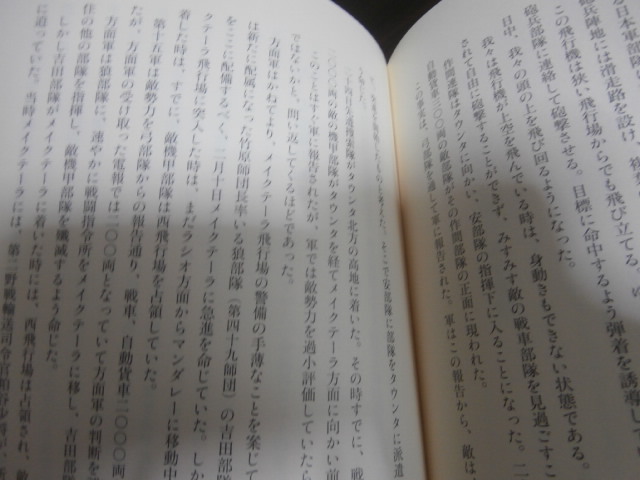 日本軍部隊
砲兵陣地には滑走路を設け、
この飛行機は狭い飛行場からでも飛び立てる。の
砲兵部隊に連絡して砲撃させる。目標に命中するよう弾着を誘導し
日中、我々の頭の上を飛び回るようになった。
我々は飛行機が上空を飛んでいる時は、身動きもできない状態である。
されて自由に砲撃することができず、みすみす敵の戦車部隊を見過ごすこ
作間部隊はタウンタに向かい、安部隊の指揮下に入ることになった。二
自動貨車三〇〇両の敵部隊がその作間部隊の正面に現われた。
この事実は、弓部隊を通して軍に報告された。軍はこの報告から、敵は
を考えた。そこで安部隊に部隊をタウンタに派遣
二十四日先遣捜索隊がタウンタ北方の高地に着いた。その時すでに、戦
〇〇〇両の敵の機甲部隊がタウンタを経てメイクテーラ方面に向かい前
このことはすぐ軍に報告されたが、軍では敵勢力を過小評価していたら
ではないかと、問い返してくるほどであった。
方面軍はかねてより、メイクテーラ飛行場の警備の手薄なことを案じて
は新たに配属になった竹原師団長率いる狼部隊（第四十九師団）の吉田部隊
をここに配備するべく、二月十日メイクテーラに急進を命じていた。しか
メイクテーラ飛行場に突入した時は、まだラシオ方面からマンダレーに移動中
着した時は、すでに、敵機甲部隊は西飛行場を占領していた。
第十五軍は敵勢力を弓部隊からの報告通り、戦車、自動貨車二〇〇〇両
たが、方面軍の受け取った電報では二〇〇両となっていて方面軍の判断を
方面軍は狼部隊に、速やかに戦闘指令所をメイクテーラに移し、吉田部隊
住の他の部隊を指揮し、敵機甲部隊を殲滅するよう命じた。
しかし吉田部隊がメイクテーラに着いた時には、西飛行場は占領され、敵
に迫っていた。当時メイクテーラには、第二野戦輸送司令官粕谷少将が